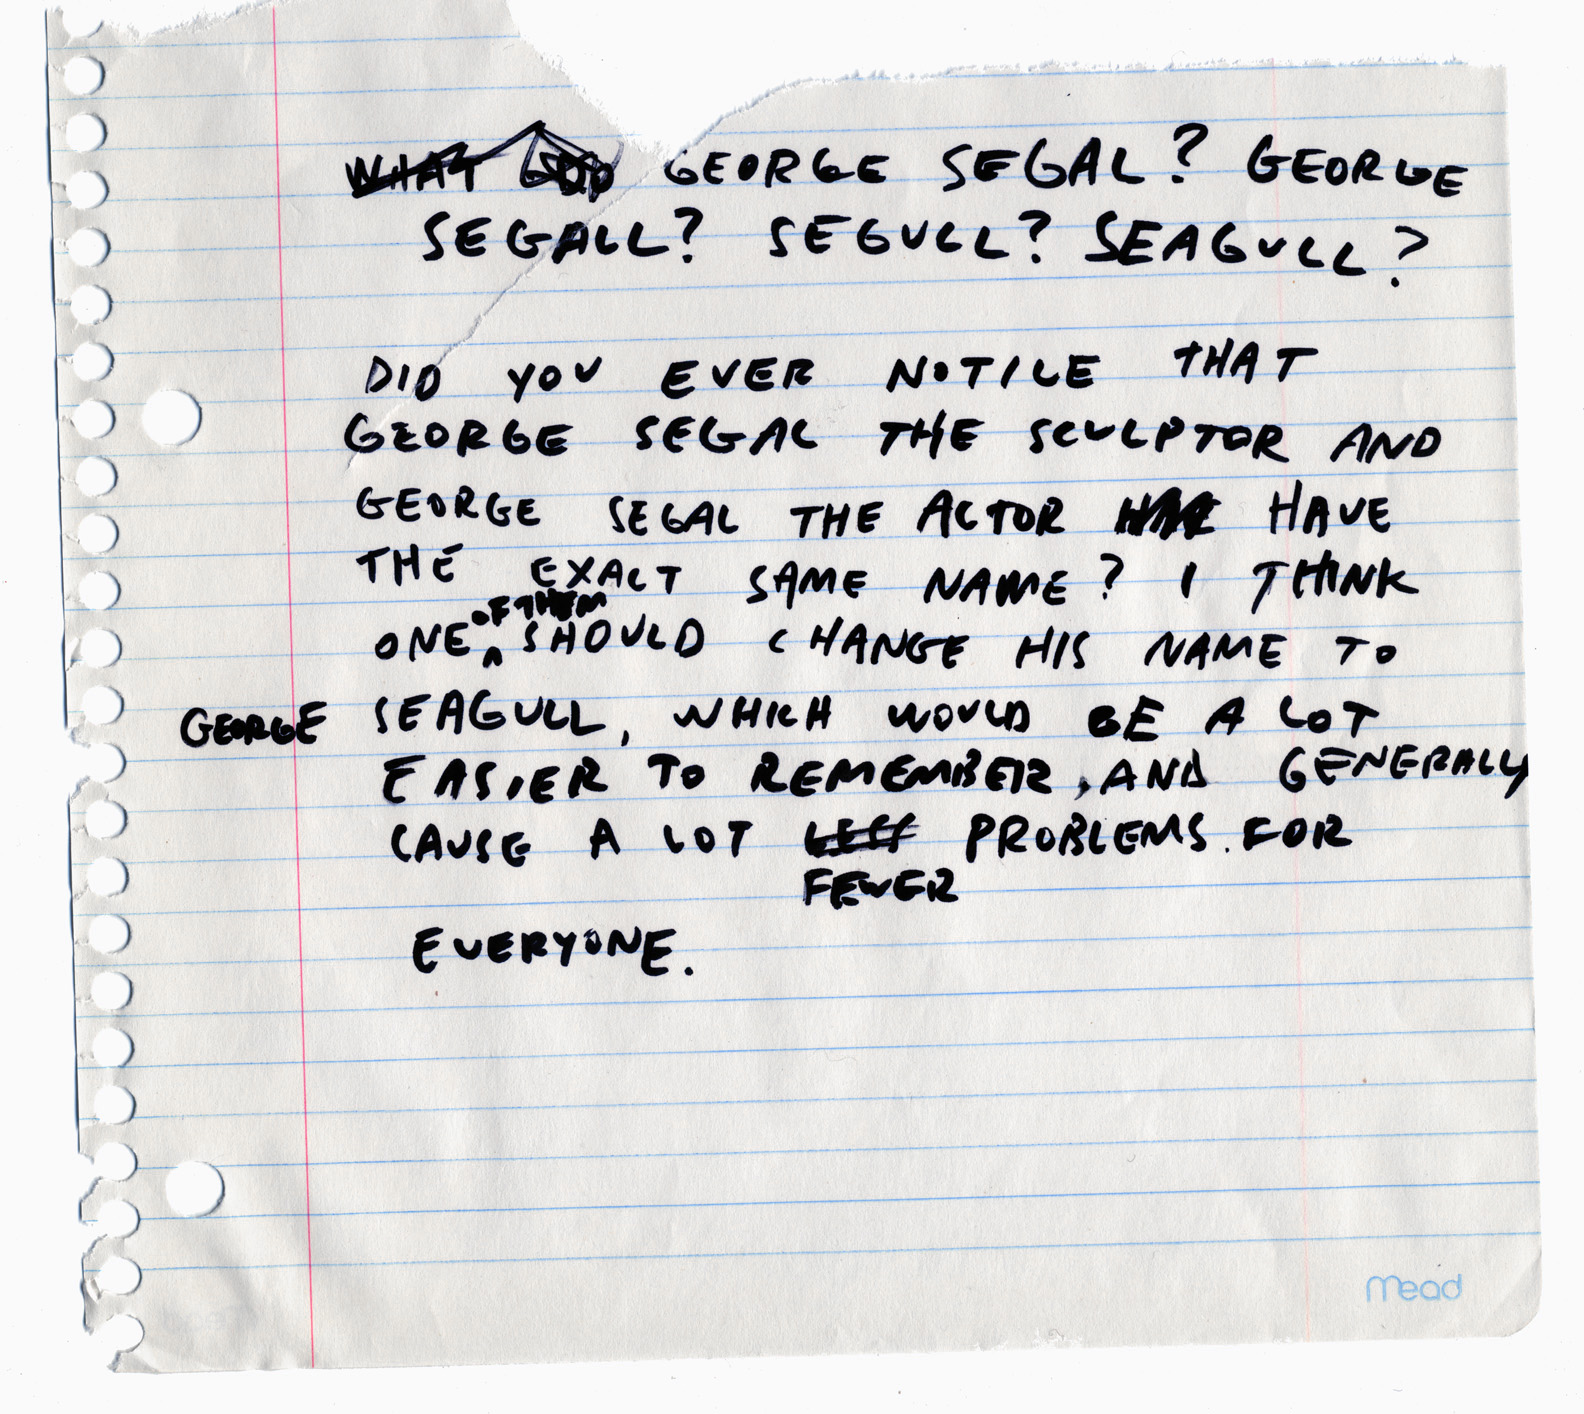 WHAT GEORGE SEGAL? GEORGE
SEGALL? SEGULL? SEAGULL?
DID YOU EVER NOTICE THAT
GEORGE SEGAL THE SCULPTOR AND
GEORGE SEGAL THE ACTOR HAVE
THE EXACT SAME NAME? I THINK
OF THEM
ONE SHOULD CHANGE HIS NAME TO
GEORGE SEAGULL, WHICH WOULD BE A LOT
EASIER TO REMEMBER, AND GENERALLY
CAUSE A LOT LESS PROBLEMS FOR
FEWER
EVERYONE.
Mead